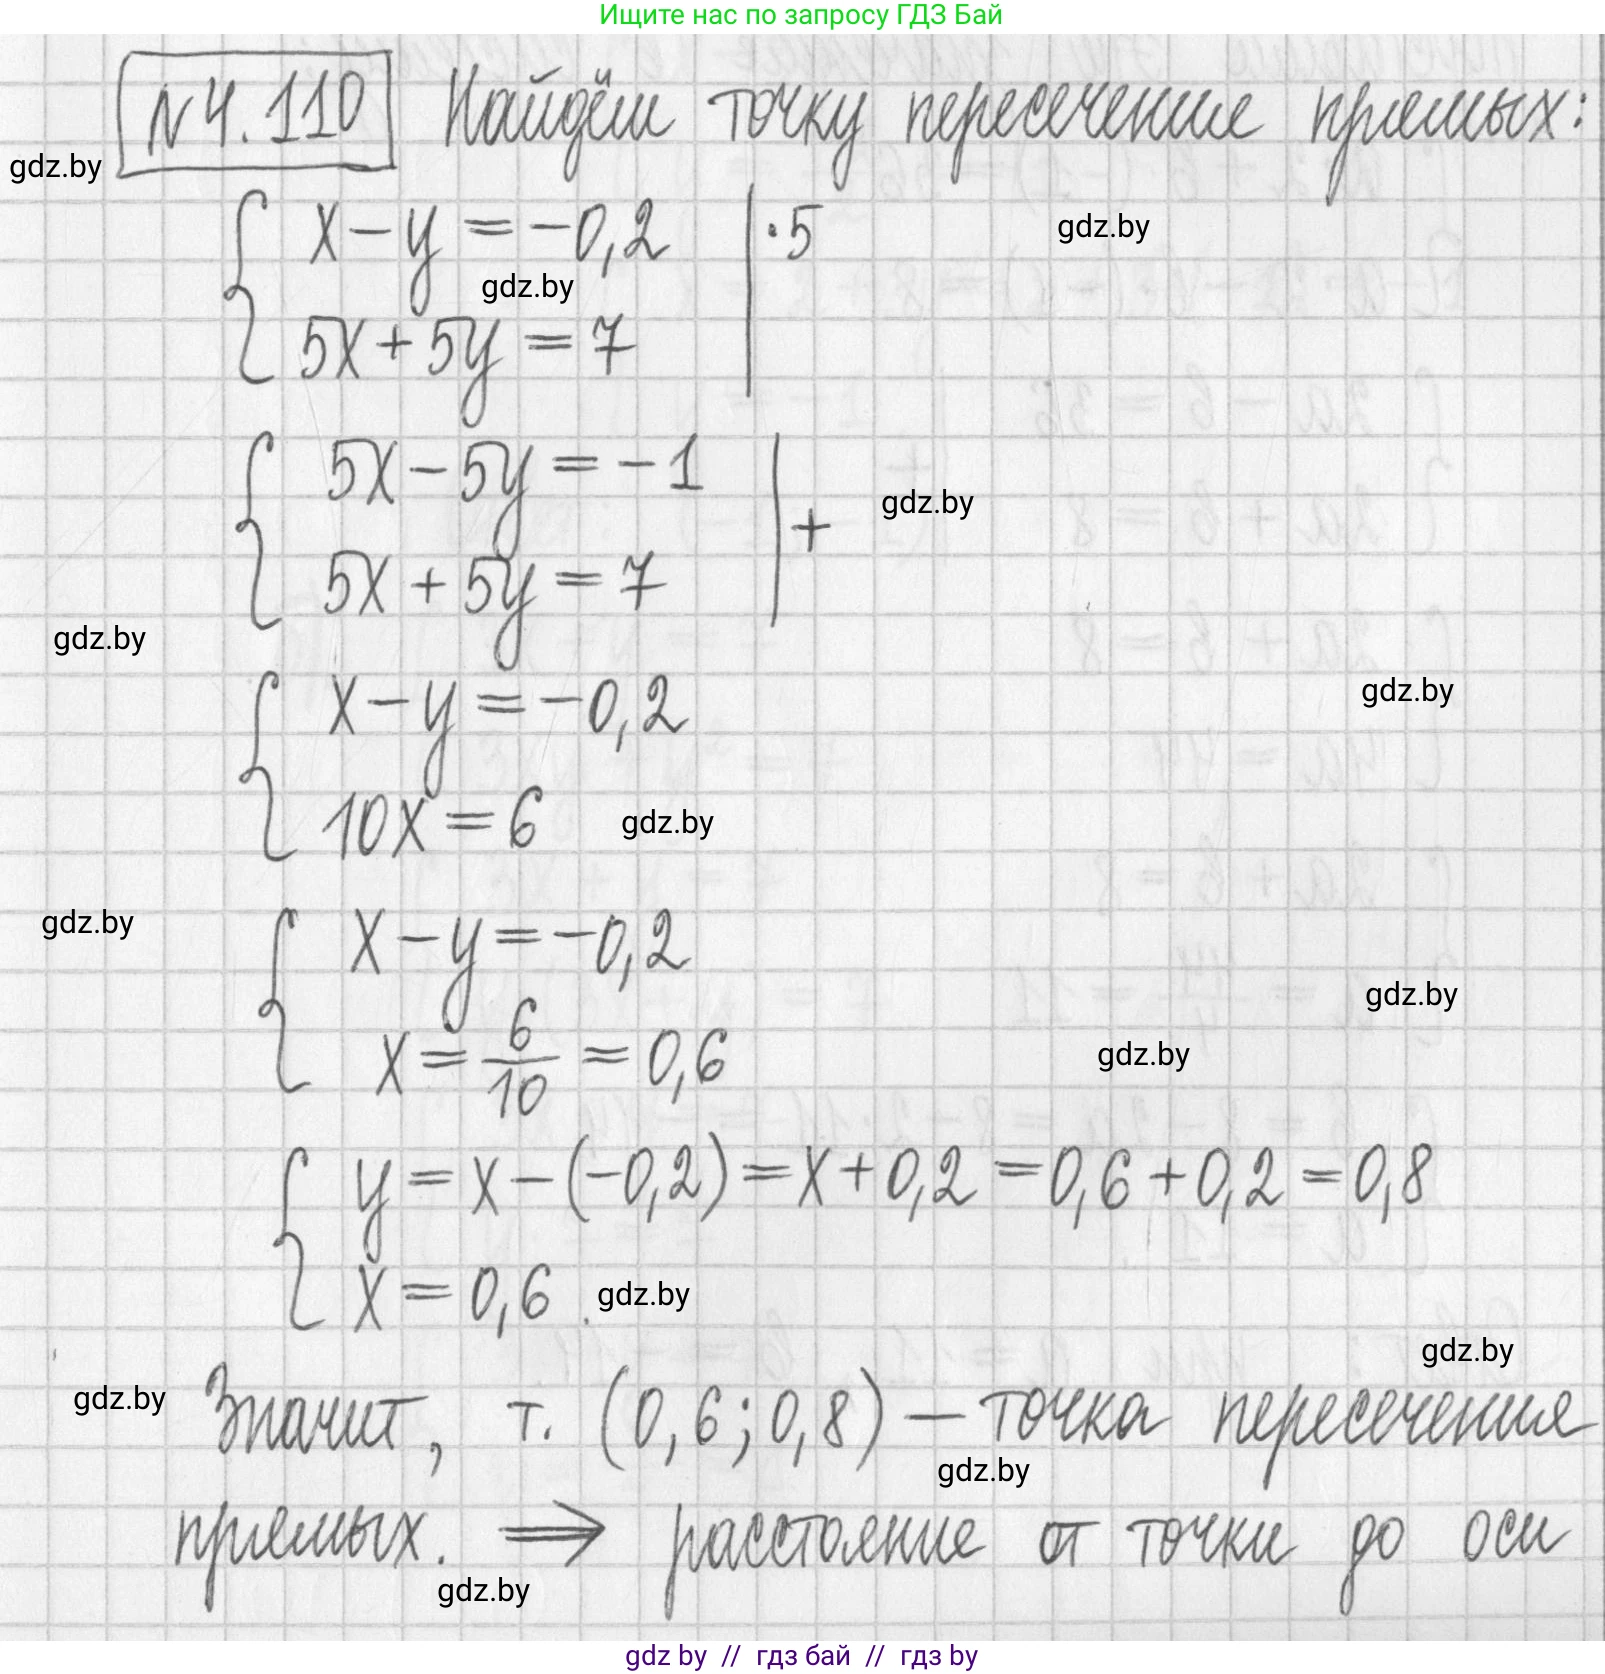 Ищите нас по запросу ГДЗ Бай
N 4.110 Найдём точку пересечение прямых:
gdz.by
x - y = -0,2 | ·5
gdz.by
gdz.by
5x + 5y = 7
5x - 5y = -1
gdz.by
+
5x + 5y = 7
gdz.by
x - y = -0,2
gdz.by
10x = 6
gdz.by
gdz.by
x - y = -0,2
gdz.by
x = 6/10 = 0,6
gdz.by
y = x - (-0,2) = x + 0,2 = 0,6 + 0,2 = 0,8
x = 0,6 .
gdz.by
gdz.by
gdz.by
Значит, т. (0,6; 0,8) — точка пересечения
gdz.by
прямых. ⇒ расстояние от точки до оси
gdz.by
gdz by // гдз бай // гдз by